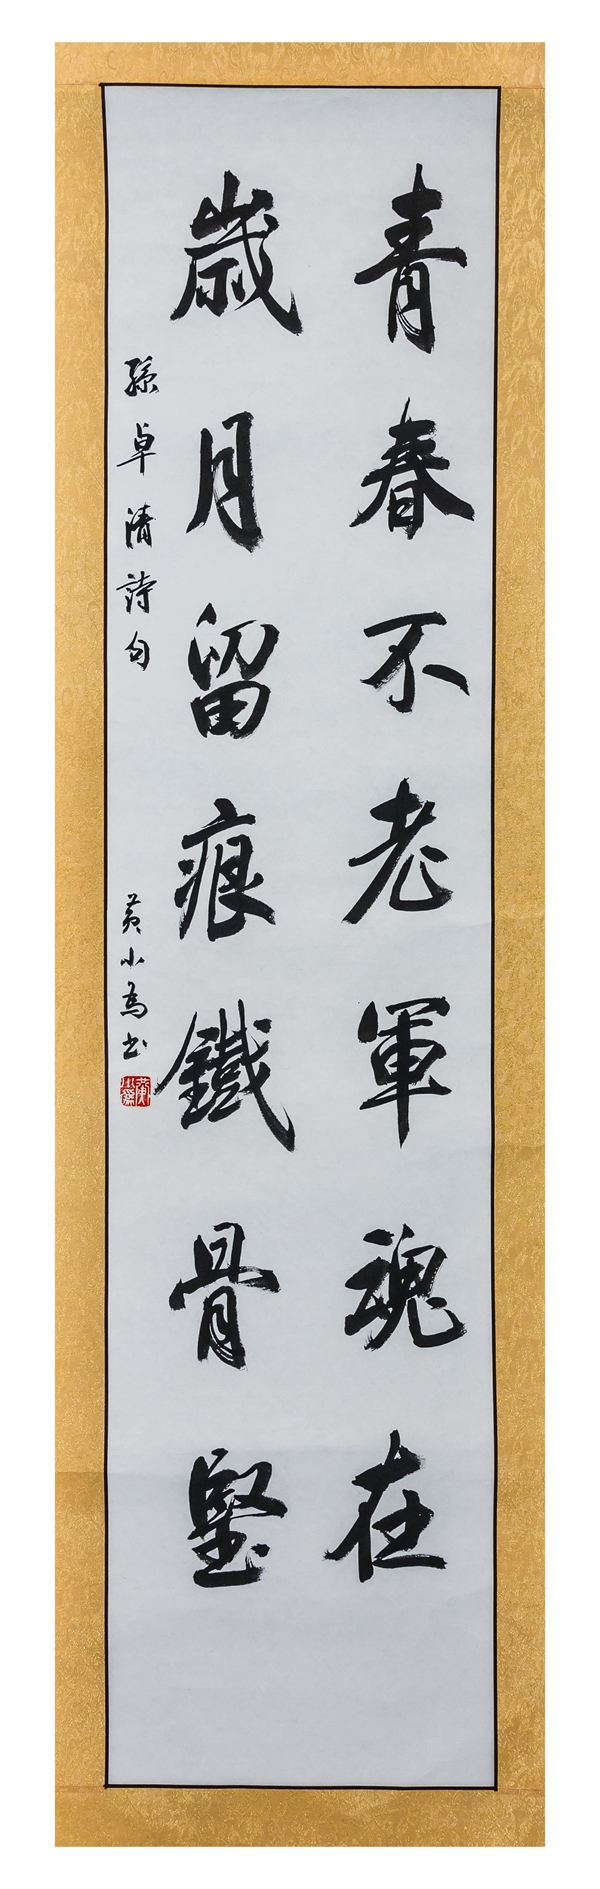 青春不老軍魂在
歲月留痕鐵骨堅
孫卓清詩句
黃小為书
黃小為